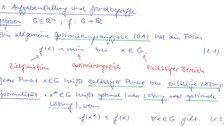 1. Aufgabenstellung und Grundbegriffe
gegeben G ⊆ ℝⁿ, f: G → ℝ
Ein allgemeine Optimierungsaufgabe (OA) hat die Form
f(x) → min bei x ∈ G. (1.1)
Zielfunktion Optimierungsziel zulässiger Bereich
Jeder Punkt x ∈ G heißt zulässiger Punkt bzw. zulässige Lösung
Optimalität: x* ∈ G heißt optimale Lösung oder globale
Lösung), wenn
f(x*) ≤ f(x) ∀x ∈ G gilt. (1.2)